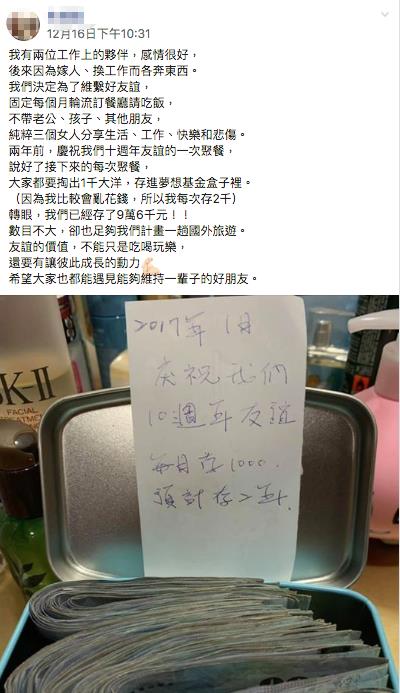 12月16日下午10:31
我有兩位工作上的夥伴，感情很好，
後來因為嫁人、換工作而各奔東西。
我們決定為了維繫好友誼，
固定每個月輪流訂餐廳請吃飯，
不帶老公、孩子、其他朋友，
純粹三個女人分享生活、工作、快樂和悲傷。
兩年前，慶祝我們十週年友誼的一次聚餐，
說好了接下來的每次聚餐，
大家都要掏出1千大洋，存進夢想基金盒子裡。
（因為我比較會亂花錢，所以我每次存2千）
轉眼，我們已經存了9萬6千元！！
數目不大，卻也足夠我們計畫一趟國外旅遊。
友誼的價值，不能只是吃喝玩樂，
還要有讓彼此成長的動力💪🏻
希望大家也都能遇見能夠維持一輩子的好朋友。
2017年1月
庆祝我們
10週年友誼
每月存1000.
預計存2年.
SK-II
FACIAL
TREATMENT